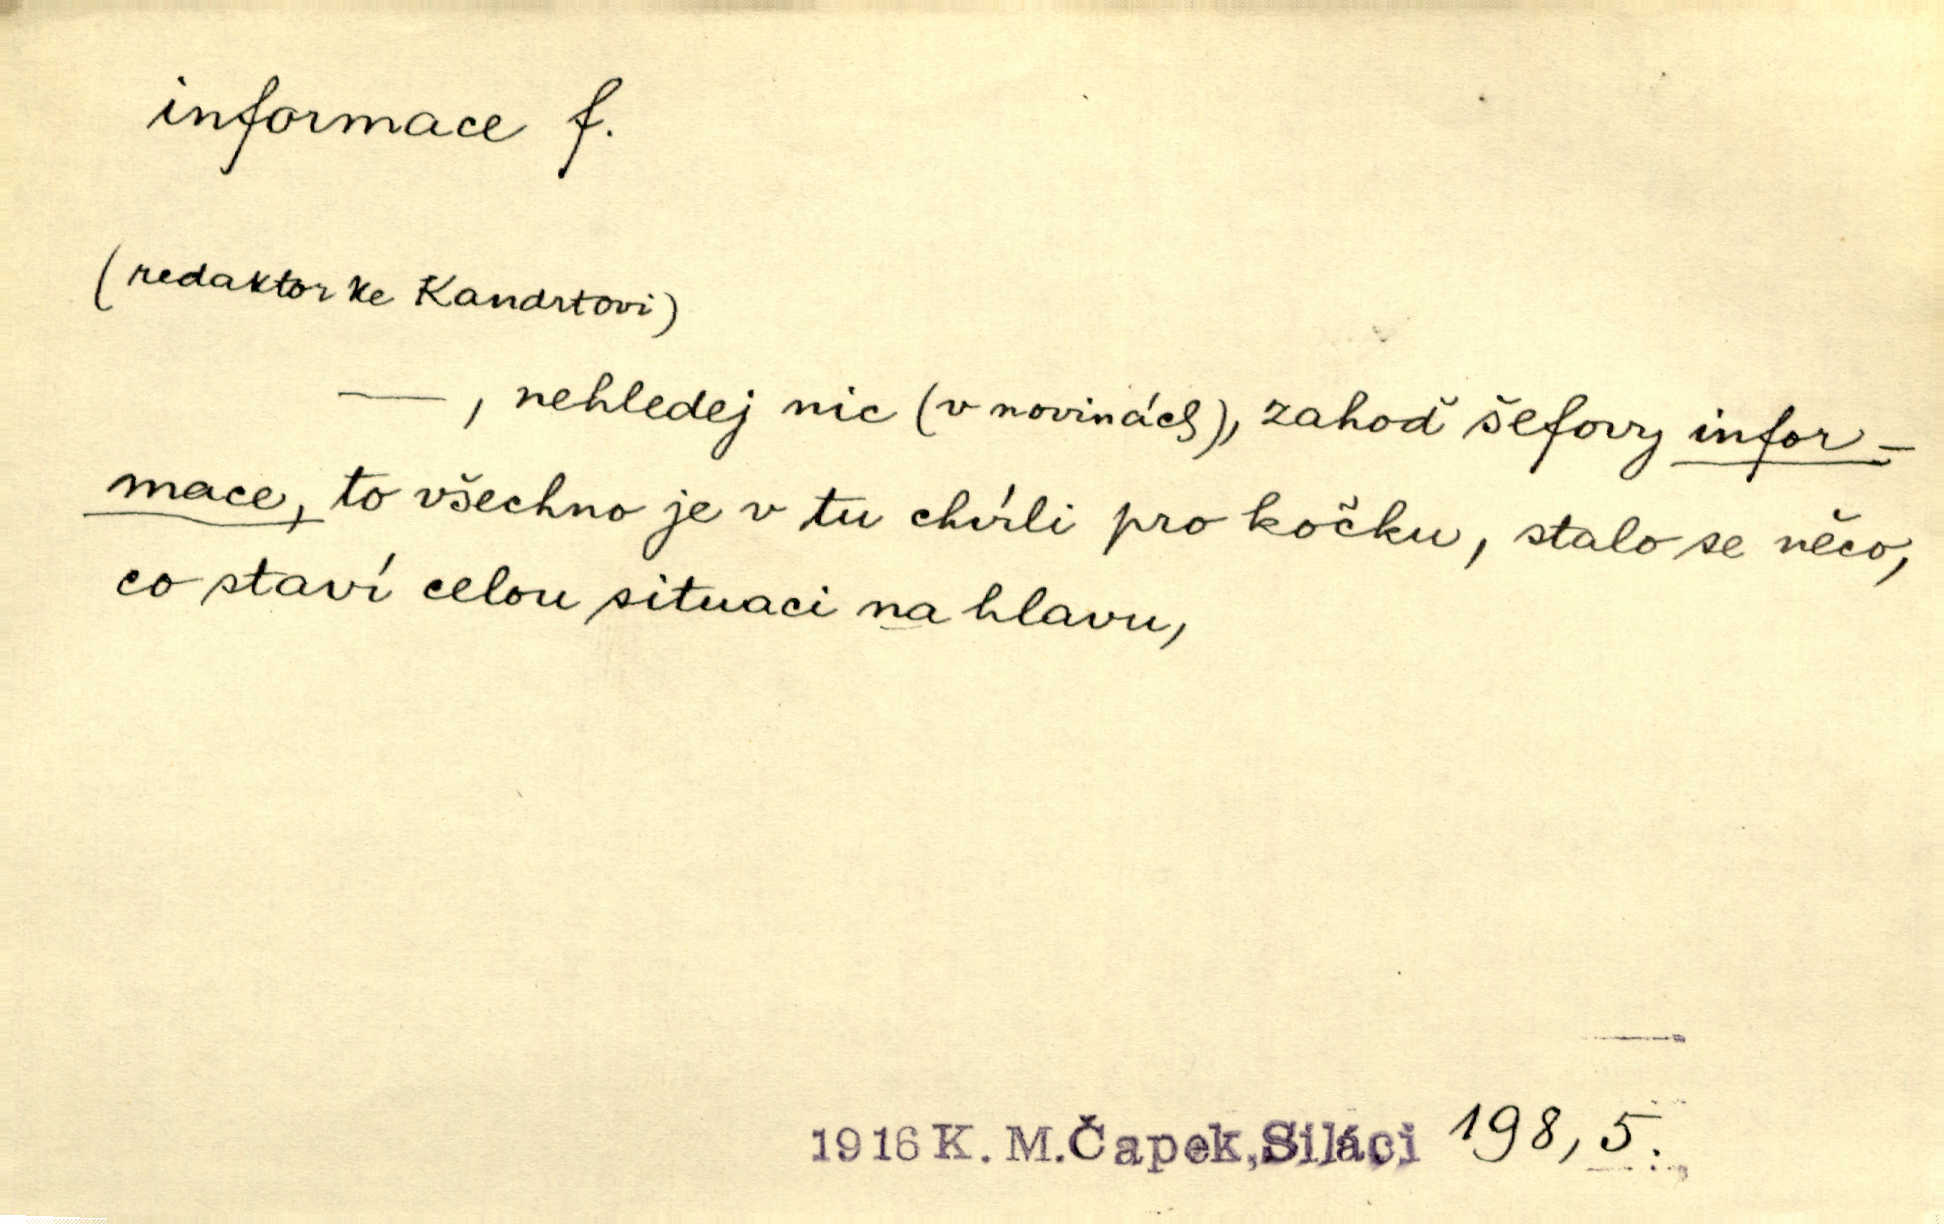 informace f.
(redaktor ke Kandrtovi)
—, nehledej nic (v novinách), zahoď šéfovy infor-
mace, to všechno je v tu chvíli pro kočku, stalo se něco,
co staví celou situaci na hlavu,
1916 K. M. Čapek, Siláci 198, 5.